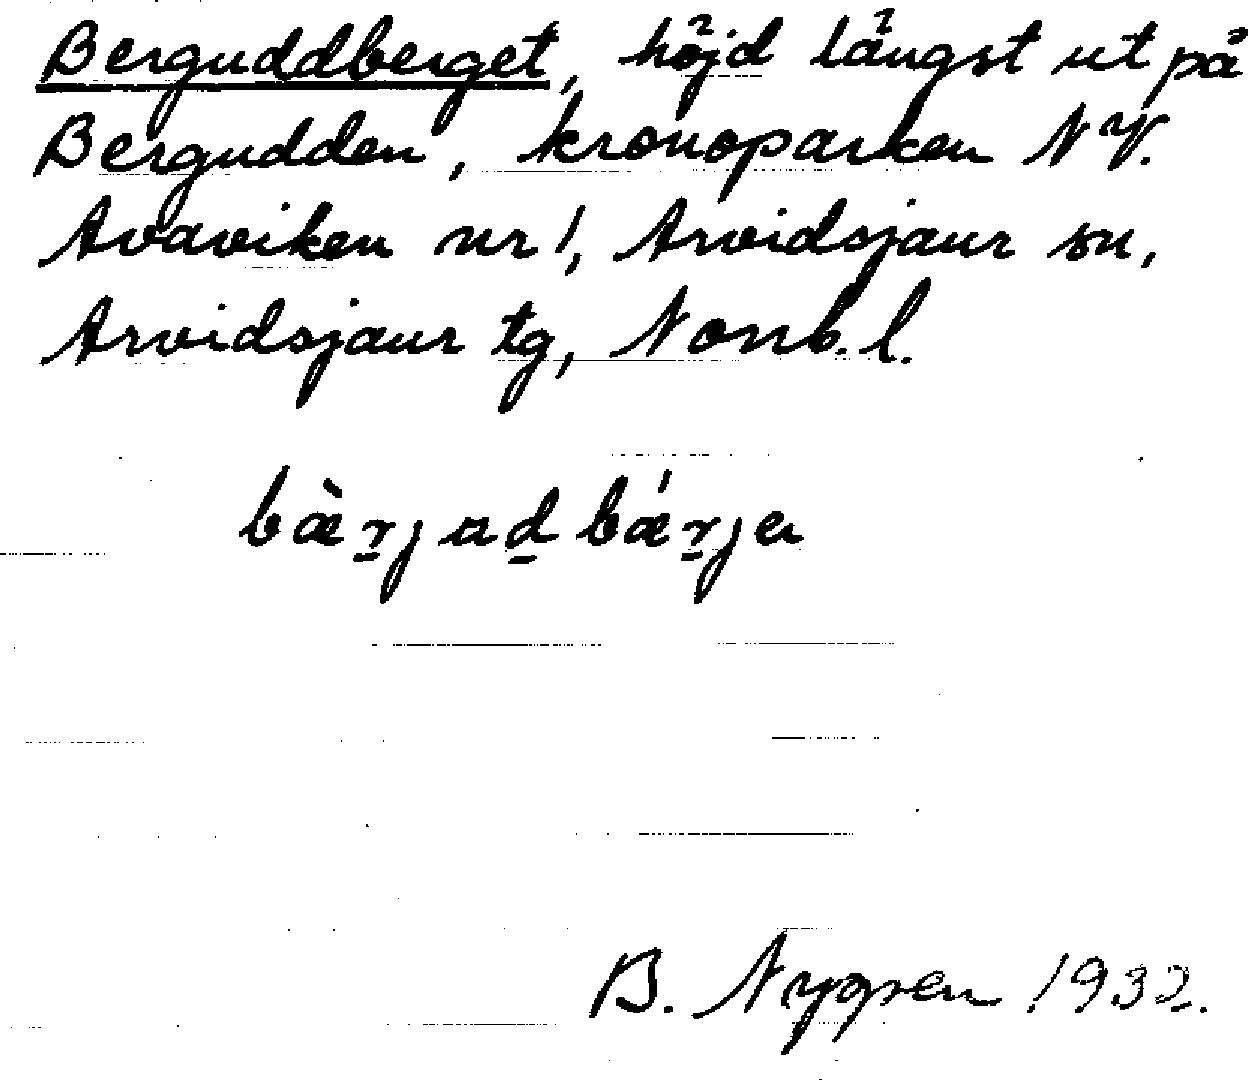 Berguddberget, höjd längst ut på
Bergudden, kronoparken NV.
Avaviken nr 1, Arvidsjaur sn,
Arvidsjaur tg, Norrb. l.
bæ̀r̠jɑd̠bǽr̠jɐ
B. Nygren 1932.